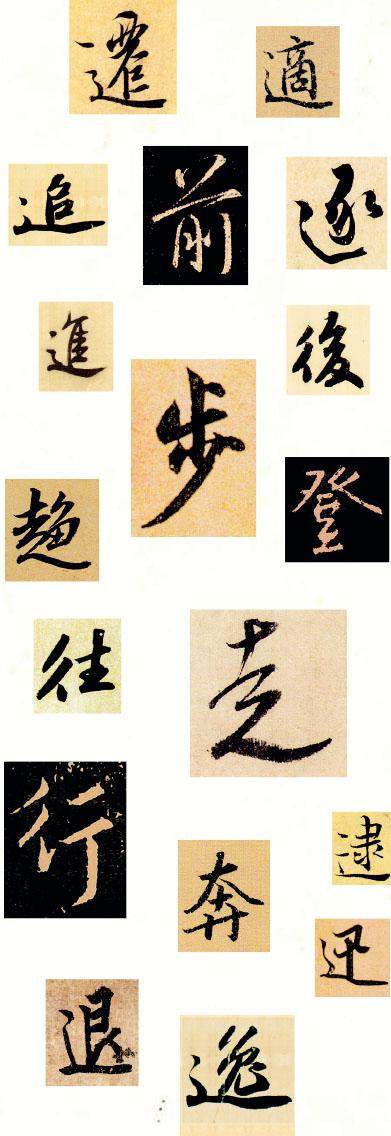 遷
適
追
前
逐
進
後
步
登
趨
往
走
行
逮
奔
迅
退
逸